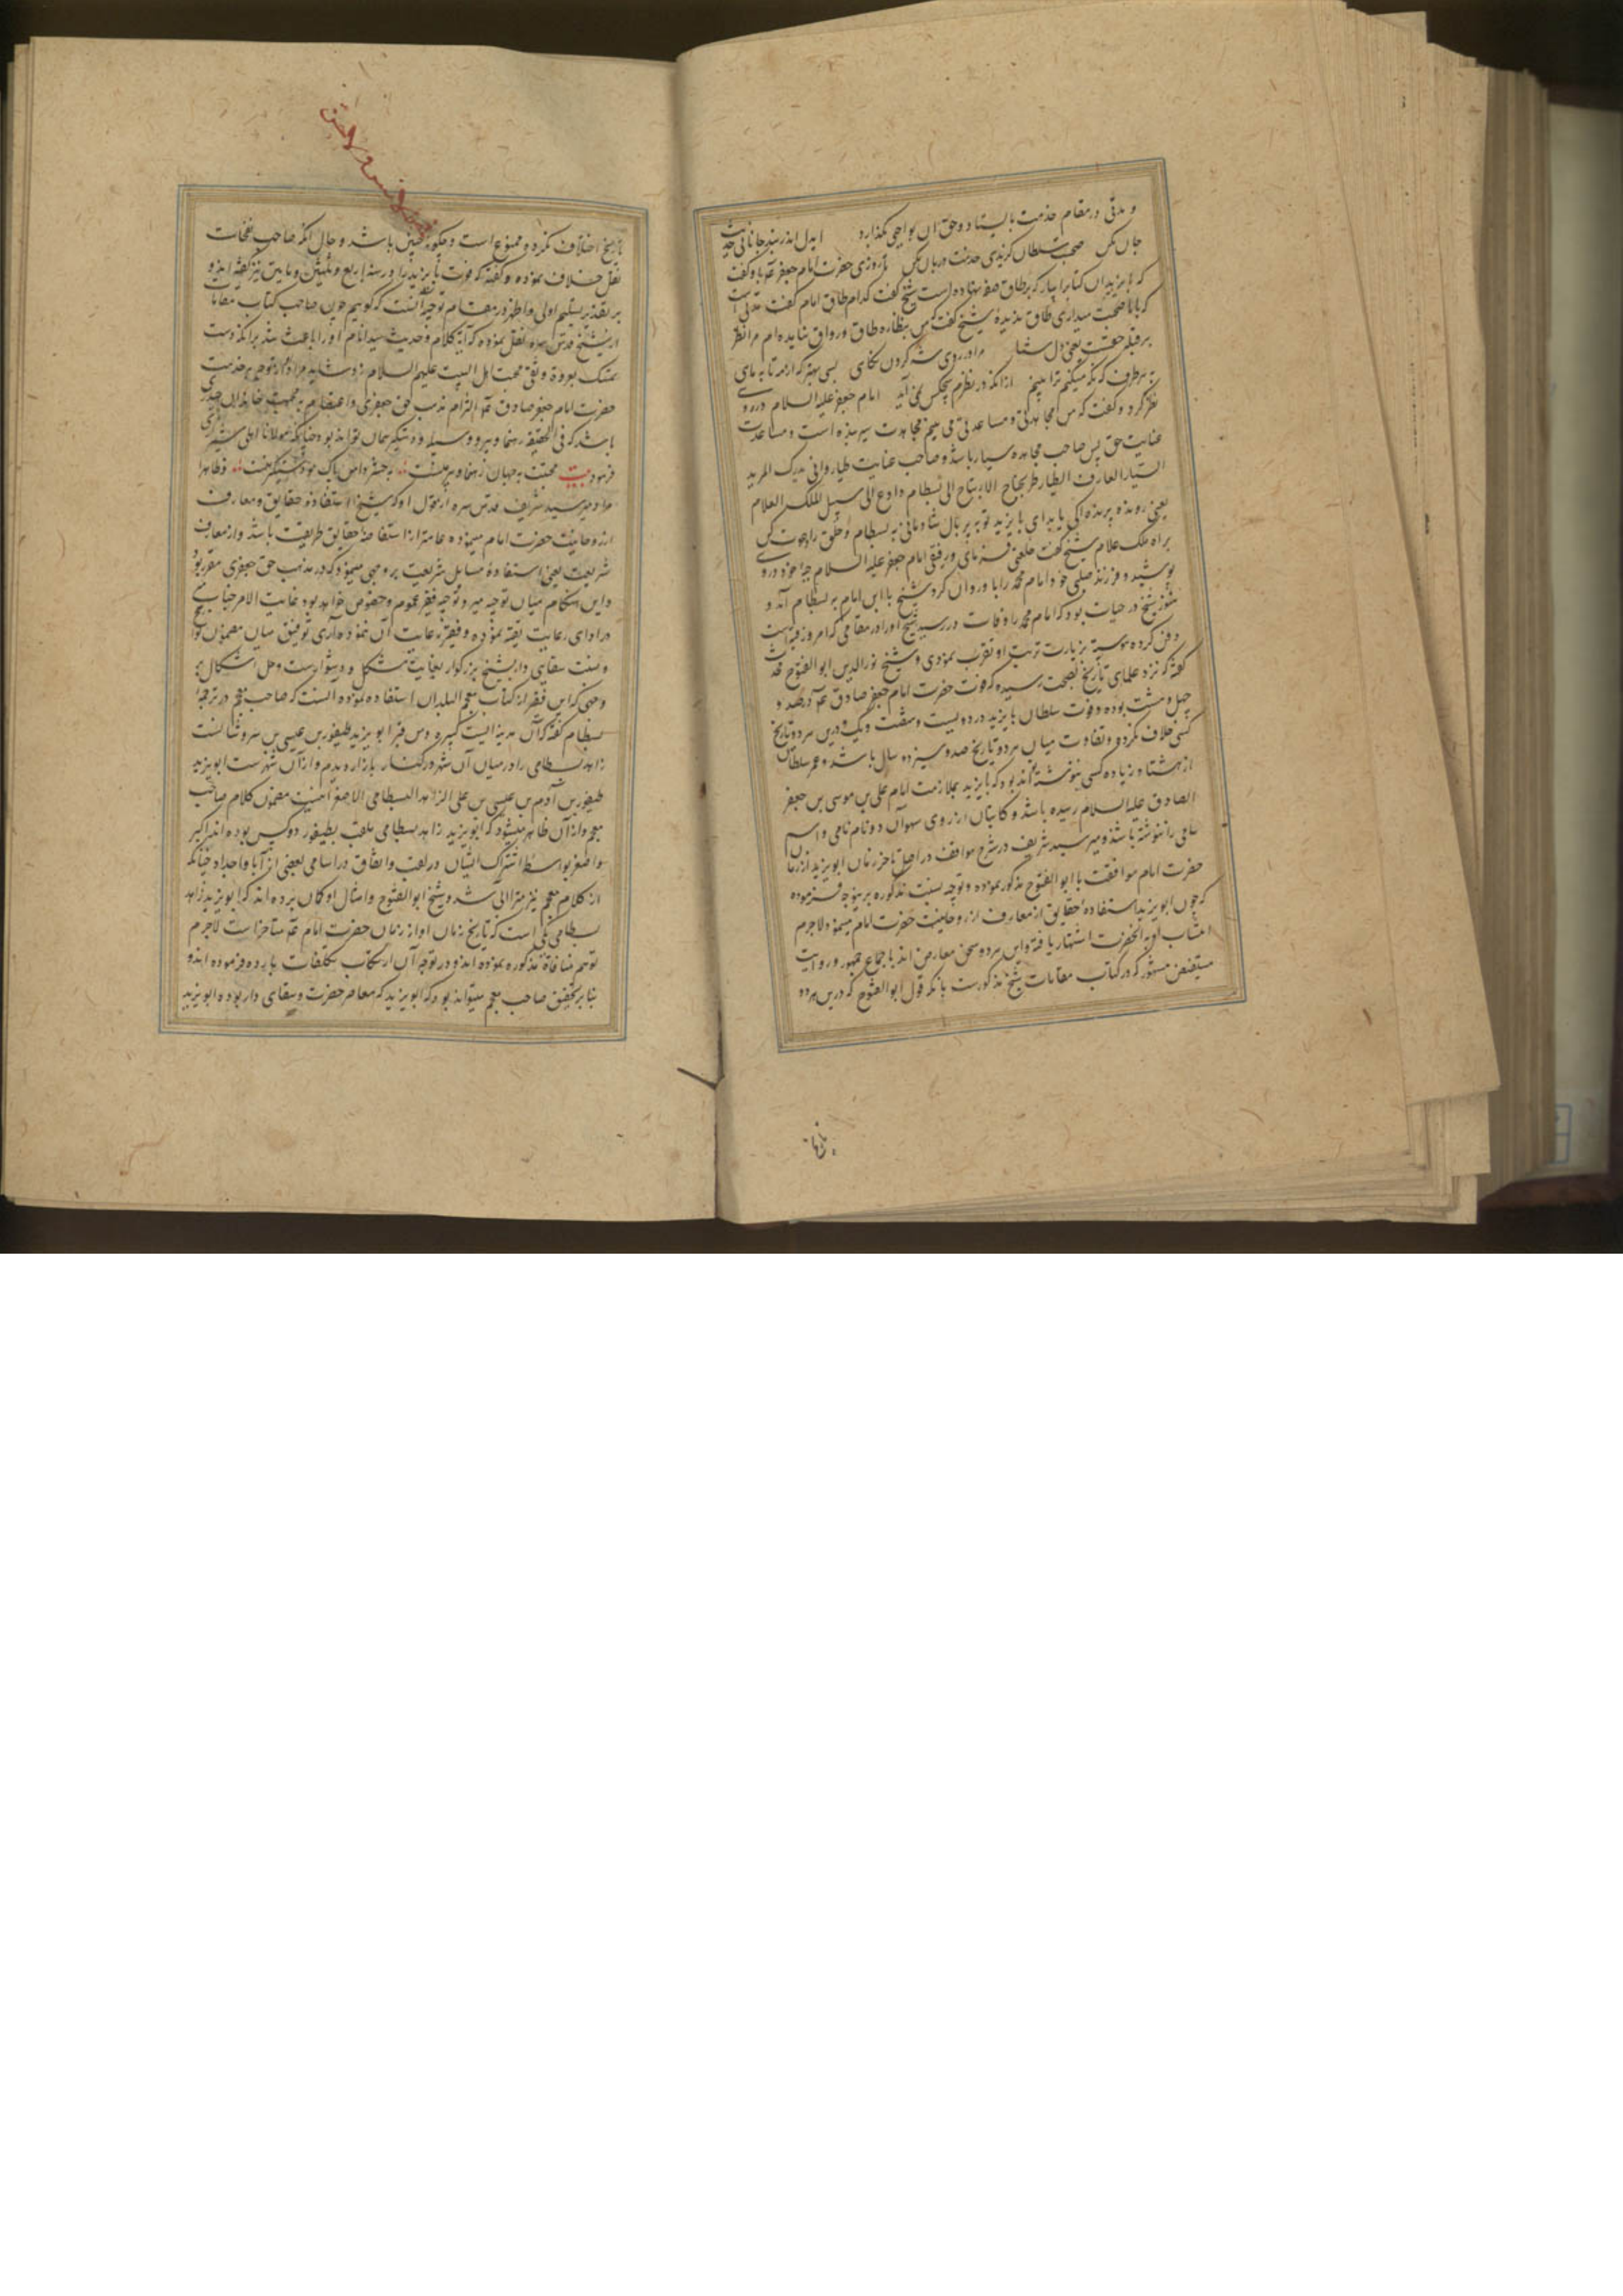 و مدتی در مقام خدمت بایستاد و حق آن بواجبی بگذارد ایدل اندر بند جانانی
جان مکن صحبت سلطان گزیدی خدمت دربان مکن تا روزی حضرت امام جعرع باو گفت
که بایزید آن کتابرا بیار که برطاق صفه نهاده است شیخ گفت کدام طاق امام گفت مدتی است
که با ما صحبت میداری طاق ندیدهٔ شیخ گفت من بنظاره طاق و رواق نیامده ام مرا نظر
بر قبله حقست یعنی دل شما
به هر طرف که نگه میکنم ترا بینم ازانکه در نظرم هیچکس نمی آید امام جعفر علیه السلام در وی
نظر کرد و گفت که من مجاهدتی و مساعدتی می بینم مجاهدت سیر بنده است و مساعدت
عنایت حق پس صاحب مجاهده سیار باشد و صاحب عنایت طیار وانی یدرک المرید
السیار العارف الطیار طر بجناح الابتهاج الی بسطام وادع الی سبیل الملک العلام
یعنی رونده پرنده را کی یابد ای بایزید تو به پر بال شادمانی به بسطام و خلق را دعوت کن
براه ملک علام شیخ گفت خلعتی فرمای و رفیقی امام جعفر علیه السلام جبه خود در وی
پوشید و فرزند صلبی خود امام محمد را با او روان کرد شیخ با این امام به بسطام آمد و
هنوز شیخ در حیات بود که امام محمد را وفات در رسید شیخ او را در مقامی که امروز قبه است
دفن کرد و همیشه بزیارت تربت او تقرب نمودی و شیخ نورالدین ابوالفتوح محدث
گفته که نزد علمای تاریخ بصحت رسیده که فوت حضرت امام جعفر صادق ع در صد و
چهل و هشت بوده و فوت سلطان بایزید در دویست و شصت و یک و درین هر دو تاریخ
کسی خلاف نکرده و تفاوت میان هر دو تاریخ صد و سیزده سال باشد و عمر سلطان
از هشتاد زیاده کسی ننوشته تواند بود که بایزید بملازمت امام علی بن موسی بن جعفر
الصادق علیه السلام رسیده باشد و کاتبان از روی سهو آن دو نام نامی و اسم
سامی را ننوشته باشند و میر سید شریف در شرح مواقف در اصل تاخر زمان ابویزید از زمان
حضرت امام موافقت با ابوالفتوح مذکور نموده و توجیه نسبت مذکوره برینوجه فرموده
که چون ابویزید استفاده حقایق از معارف از روحانیت حضرت امام مینمود لاجرم
انتساب او به آنحضرت اشتهار یافته و این هر دو سخن معارض اند باجماع جمهور و روایت
مستفیض مشهور که در کتاب مقامات شیخ مذکورست با آنکه قول ابوالفتوح که درین هر دو
تاریخ
تاریخ اختلاف نکرده و ممنوع است و چگونه چنین باشد و حال آنکه صاحب نفحات
نقل خلاف نموده و گفته که فوت بایزید را در سنه اربع و ثلثین و مایتین نیز گفته اند و
بر تقدیر تسلیم اولی و اظهر در مقام توجیه آنست که گوییم چون صاحب کتاب مقامات
از شیخ قدس سره نقل نموده که آیه کلام و حدیث سید انام او را باعث شد برانکه دست
تمسک بعروة وثقی محبت اهل البیت علیهم السلام زند شاید مراد از توجه بخدمت
حضرت امام جعفر صادق ع التزام مذهب حق جعفری و اعتصام به محبت خاندان حیدری
باشد که فی الحقیقه رهنما و پیر و وسیله و دستگیر همان تواند بود چنانکه مولانا اهلی شیرازی
فرمود بیت محبتت به جهان رهنما و پیر منست به حشر دامن پاک تو دستگیر منست و ظاهرا
مراد میر سید شریف قدس سره از تحول او که شیخ استفاده حقایق و معارف
از روحانیت حضرت امام مینموده عامتر از استفاضه حقایق طریقت باشد و از معارف
شریعت یعنی استفادهٔ مسایل شریعت بر وجهی مینمود که در مذهب حق جعفری مقرر بود
و این هنگام میان توجیه میر و توجیه فقیر عموم و خصوص خواهد بود غایت الامر جناب میر
در ادای رعایت تقیه نموده و فقیر رعایت آن ننموده آری توفیق میان مضمون تواریخ
و نسبت سقایی دار شیخ بزرگوار بغایت مشکل و دشوارست و حل اشکال
وجهی که این فقیر از کتاب معجم البلدان استفاده نموده آنست که صاحب معجم در ترجمه
بسطام گفته که آن مدینه ایست کبیره و من قبر ابو یزید طیفور بن عیسی بن سروشانست
زاهد بسطامی را در میان آن شهر در کنار بازار دیدم و از آن شهرست ابویزید
طیفور بن آدم بن عیسی بن علی الزاهد البسطامی الاصغر اینست مضمون کلام صاحب
معجم و از آن ظاهر میشود که ابویزید زاهد بسطامی ملقب بطیفور دو کس بوده اند اکبر
و اصغر بواسطه اشتراک ایشان در لقب و اتفاق در اسامی بعضی از آبا و اجداد چنانکه
از کلام معجم نیز مترائی شد و شیخ ابوالفتوح و امثال او گمان برده اند که ابویزید زاهد
بسطامی یکی است که تاریخ زمان او از زمان حضرت امام ع متاخر است لاجرم
توهم منافاة مذکوره نموده اند و در توجیه آن ارتکاب تکلفات بارده فرموده اند و
بنابر تحقیق صاحب معجم میتواند بود که ابویزید که معاصر حضرت و سقای دار بوده ابویزید